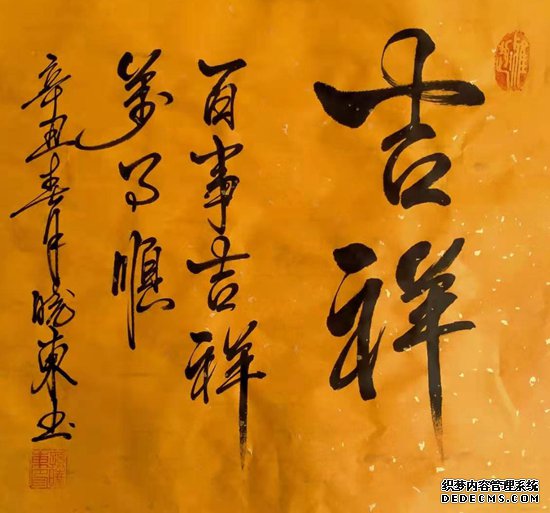 吉祥
百事吉祥
萬事順
辛丑春月曉東书
织梦内容管理系统
DEDECMS.COM